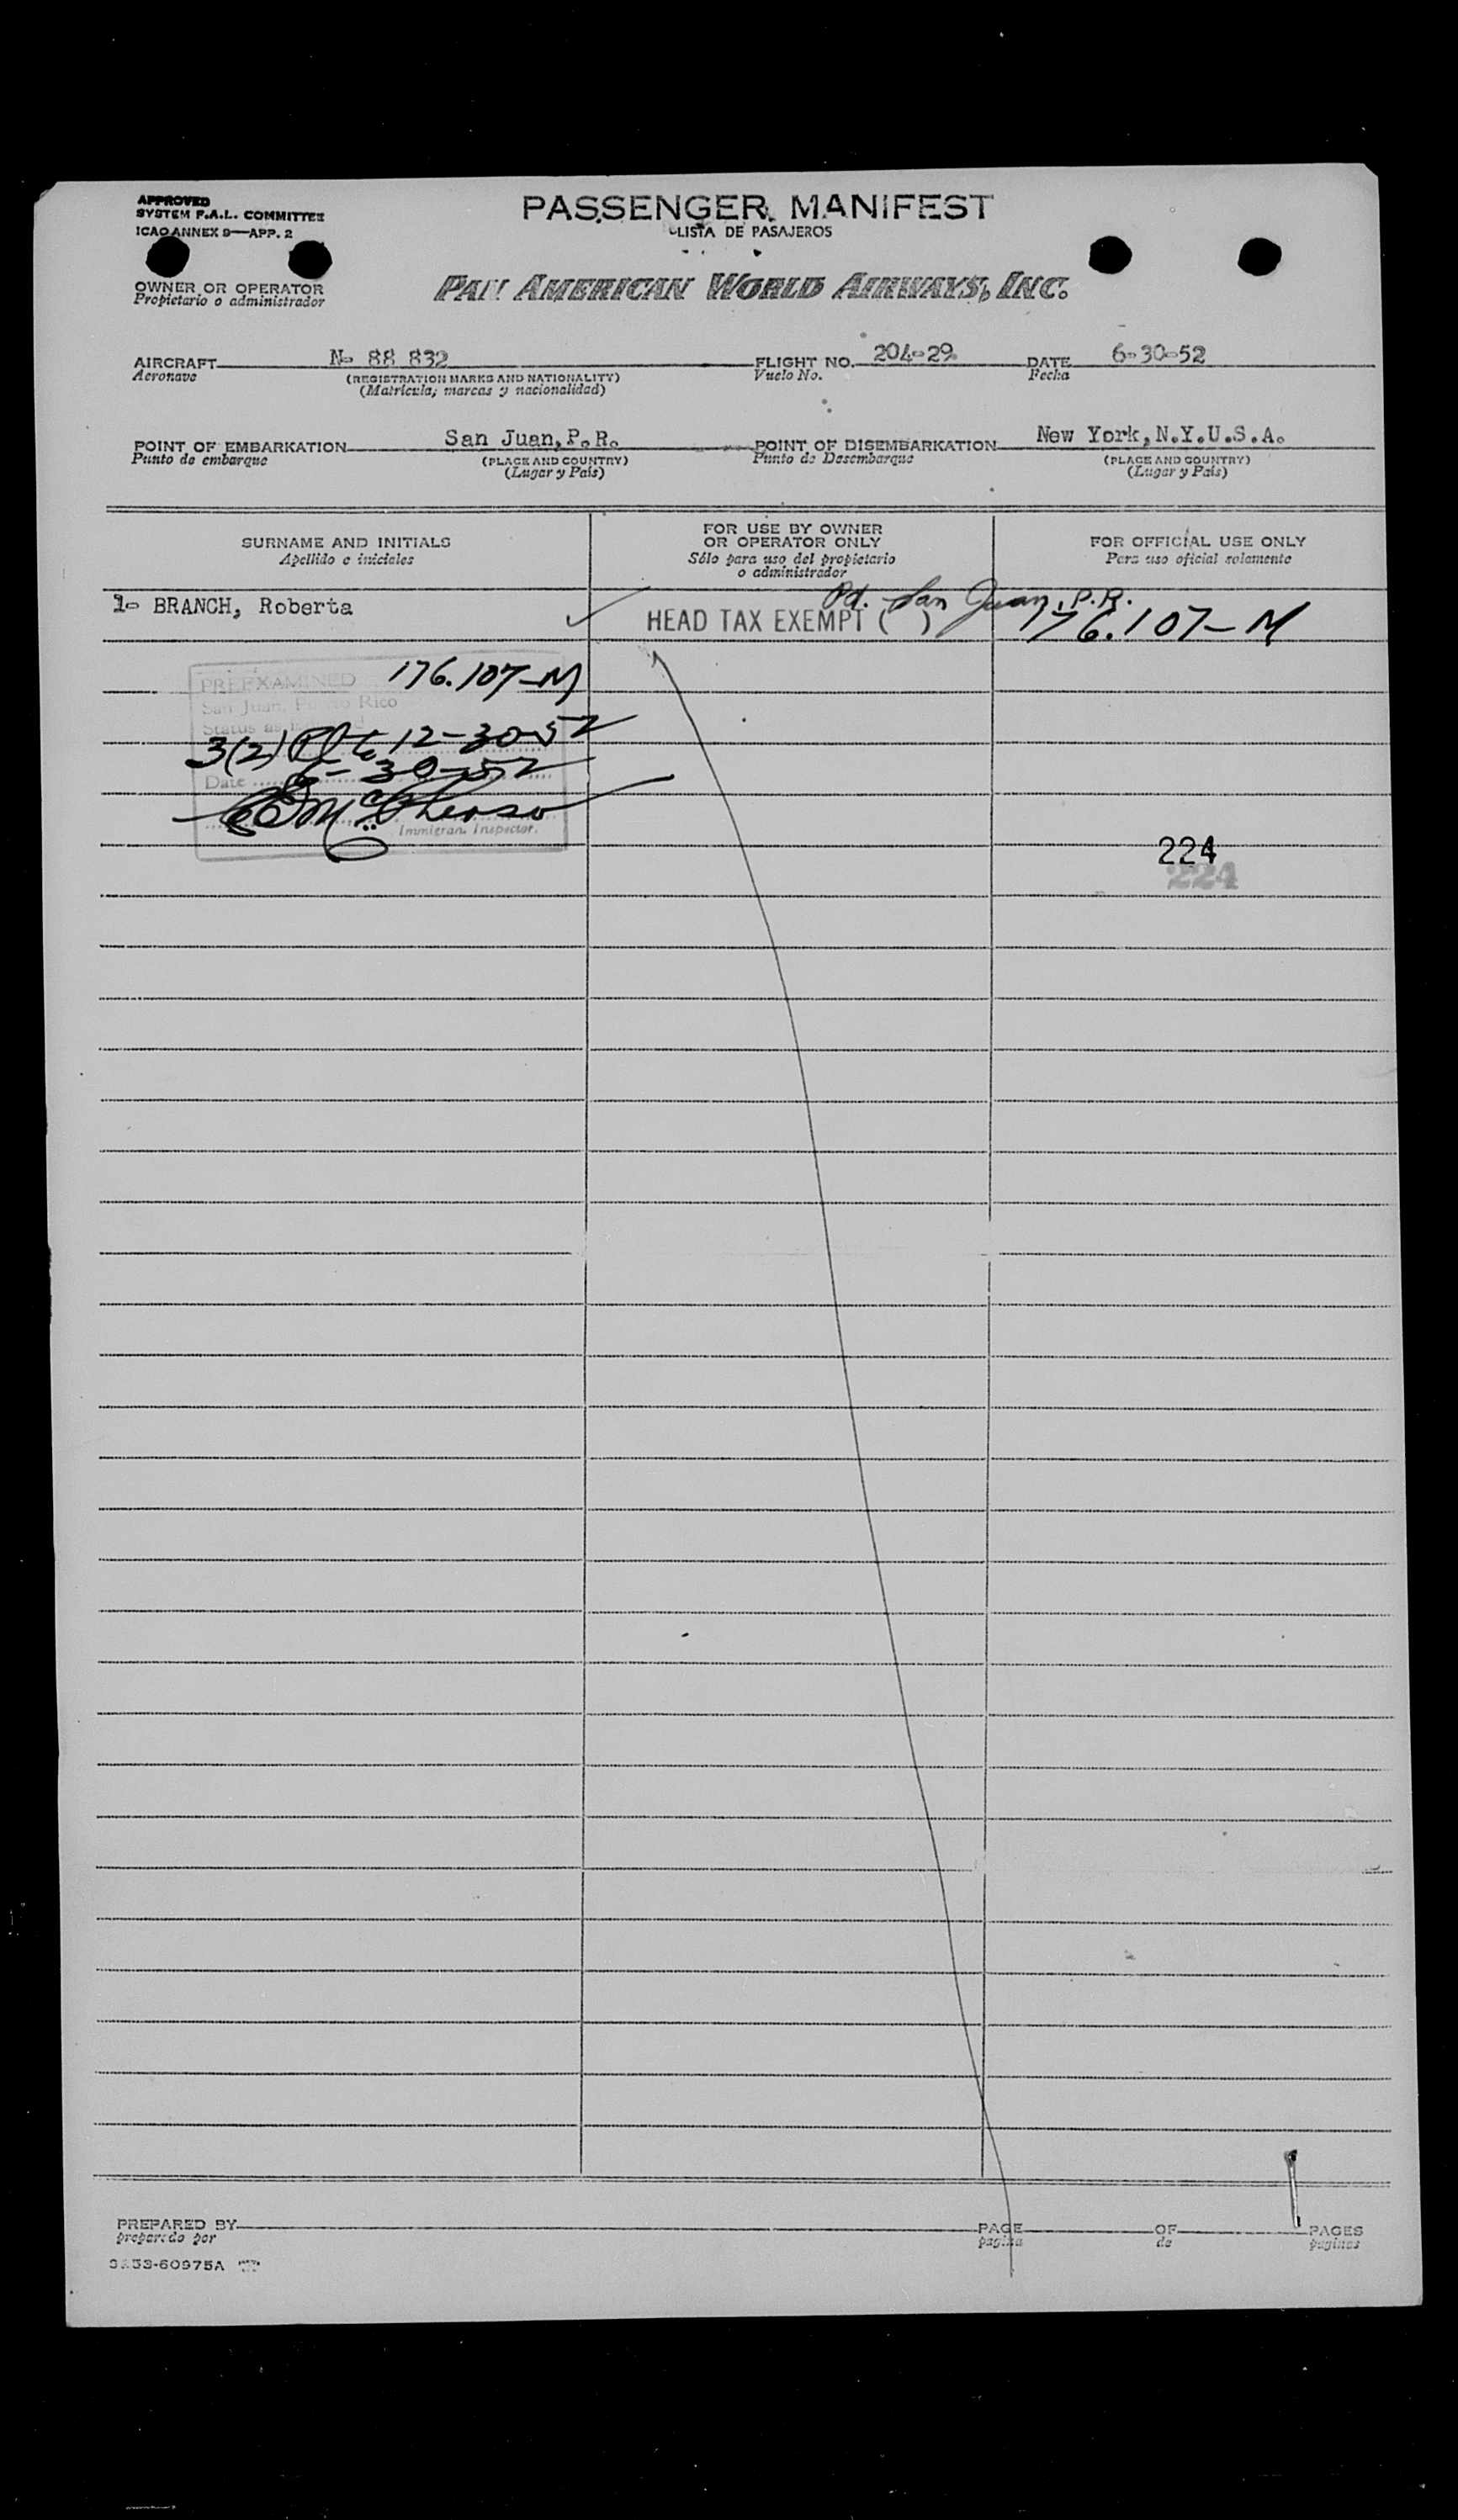 APPROVED
SYSTEM F.A.L. COMMITTEE
ICAO ANNEX 9—APP. 2
PASSENGER MANIFEST
LISTA DE PASAJEROS
OWNER OR OPERATOR
Propietario o administrador
PAN AMERICAN WORLD AIRWAYS, INC.
AIRCRAFT N- 88 832 FLIGHT NO. 204-29 DATE 6-30-52
Aeronave (REGISTRATION MARKS AND NATIONALITY) Vuelo No. Fecha
(Matricula; marcas y nacionalidad)
POINT OF EMBARKATION San Juan, P.R. POINT OF DISEMBARKATION New York, N.Y.U.S.A.
Punto de embarque (PLACE AND COUNTRY) Punto de Desembarque (PLACE AND COUNTRY)
(Lugar y País) (Lugar y País)
SURNAME AND INITIALS
Apellido e iniciales
FOR USE BY OWNER
OR OPERATOR ONLY
Sólo para uso del propietario
o administrador
FOR OFFICIAL USE ONLY
Para uso oficial solamente
1- BRANCH, Roberta
Pd. San Juan, P.R.
HEAD TAX EXEMPT ( ) 176.107-M
176.107-M
PREEXAMINED
San Juan, Puerto Rico
Status as
3(2) 12-30-52
Date 6-30-52
Immigran. Inspector.
224
224
PREPARED BY PAGE OF PAGES
preparado por pagina de paginas